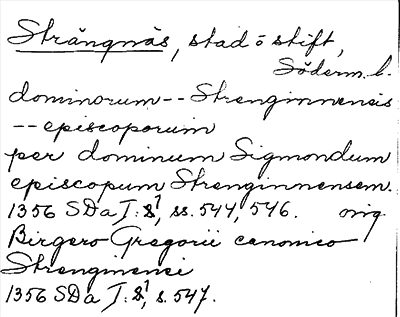 Strängnäs, stad o stift,
Söderm. l.
dominorum -- Strenginnensis
-- episcoporum
per dominum Sigmondum
episcopum Strenginnensem.
1356 SDa I: 1, ss. 544, 546. orig.
Birgero Gregorii canonico
Strenginensi
1356 SDa I: 1, s. 547.